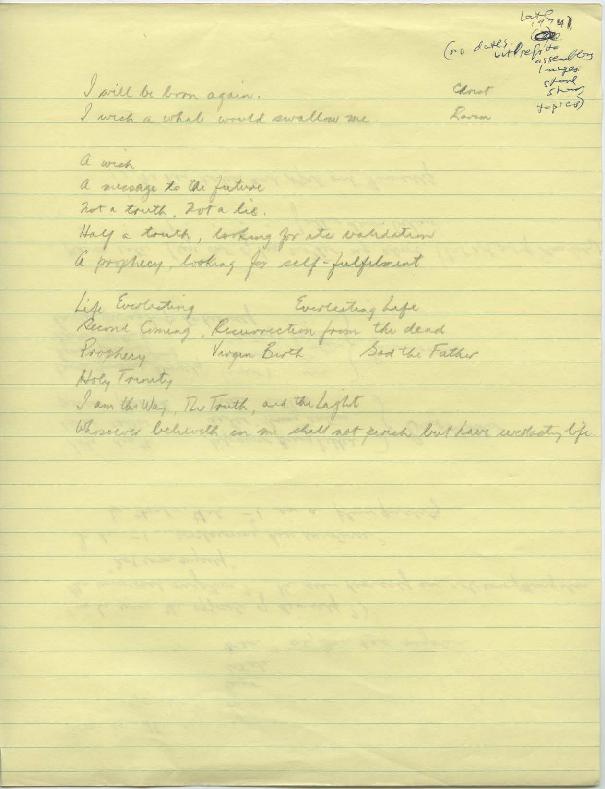 late 1974)
(no dates
with respect to
assembling
images
topics)
I will be born again. Christ
I wish a whale would swallow me Loren
A wish
A message to the future
Not a truth, Not a lie.
Half a truth, looking for its validation
A prophecy, looking for self-fulfilment
Life Everlasting Everlasting Life
Second Coming, Resurrection from the dead
Prophecy Virgin Birth God the Father
Holy Trinity
I am the Way, The Truth, and the Light
Whosoever believeth in me shall not perish but have everlasting life.